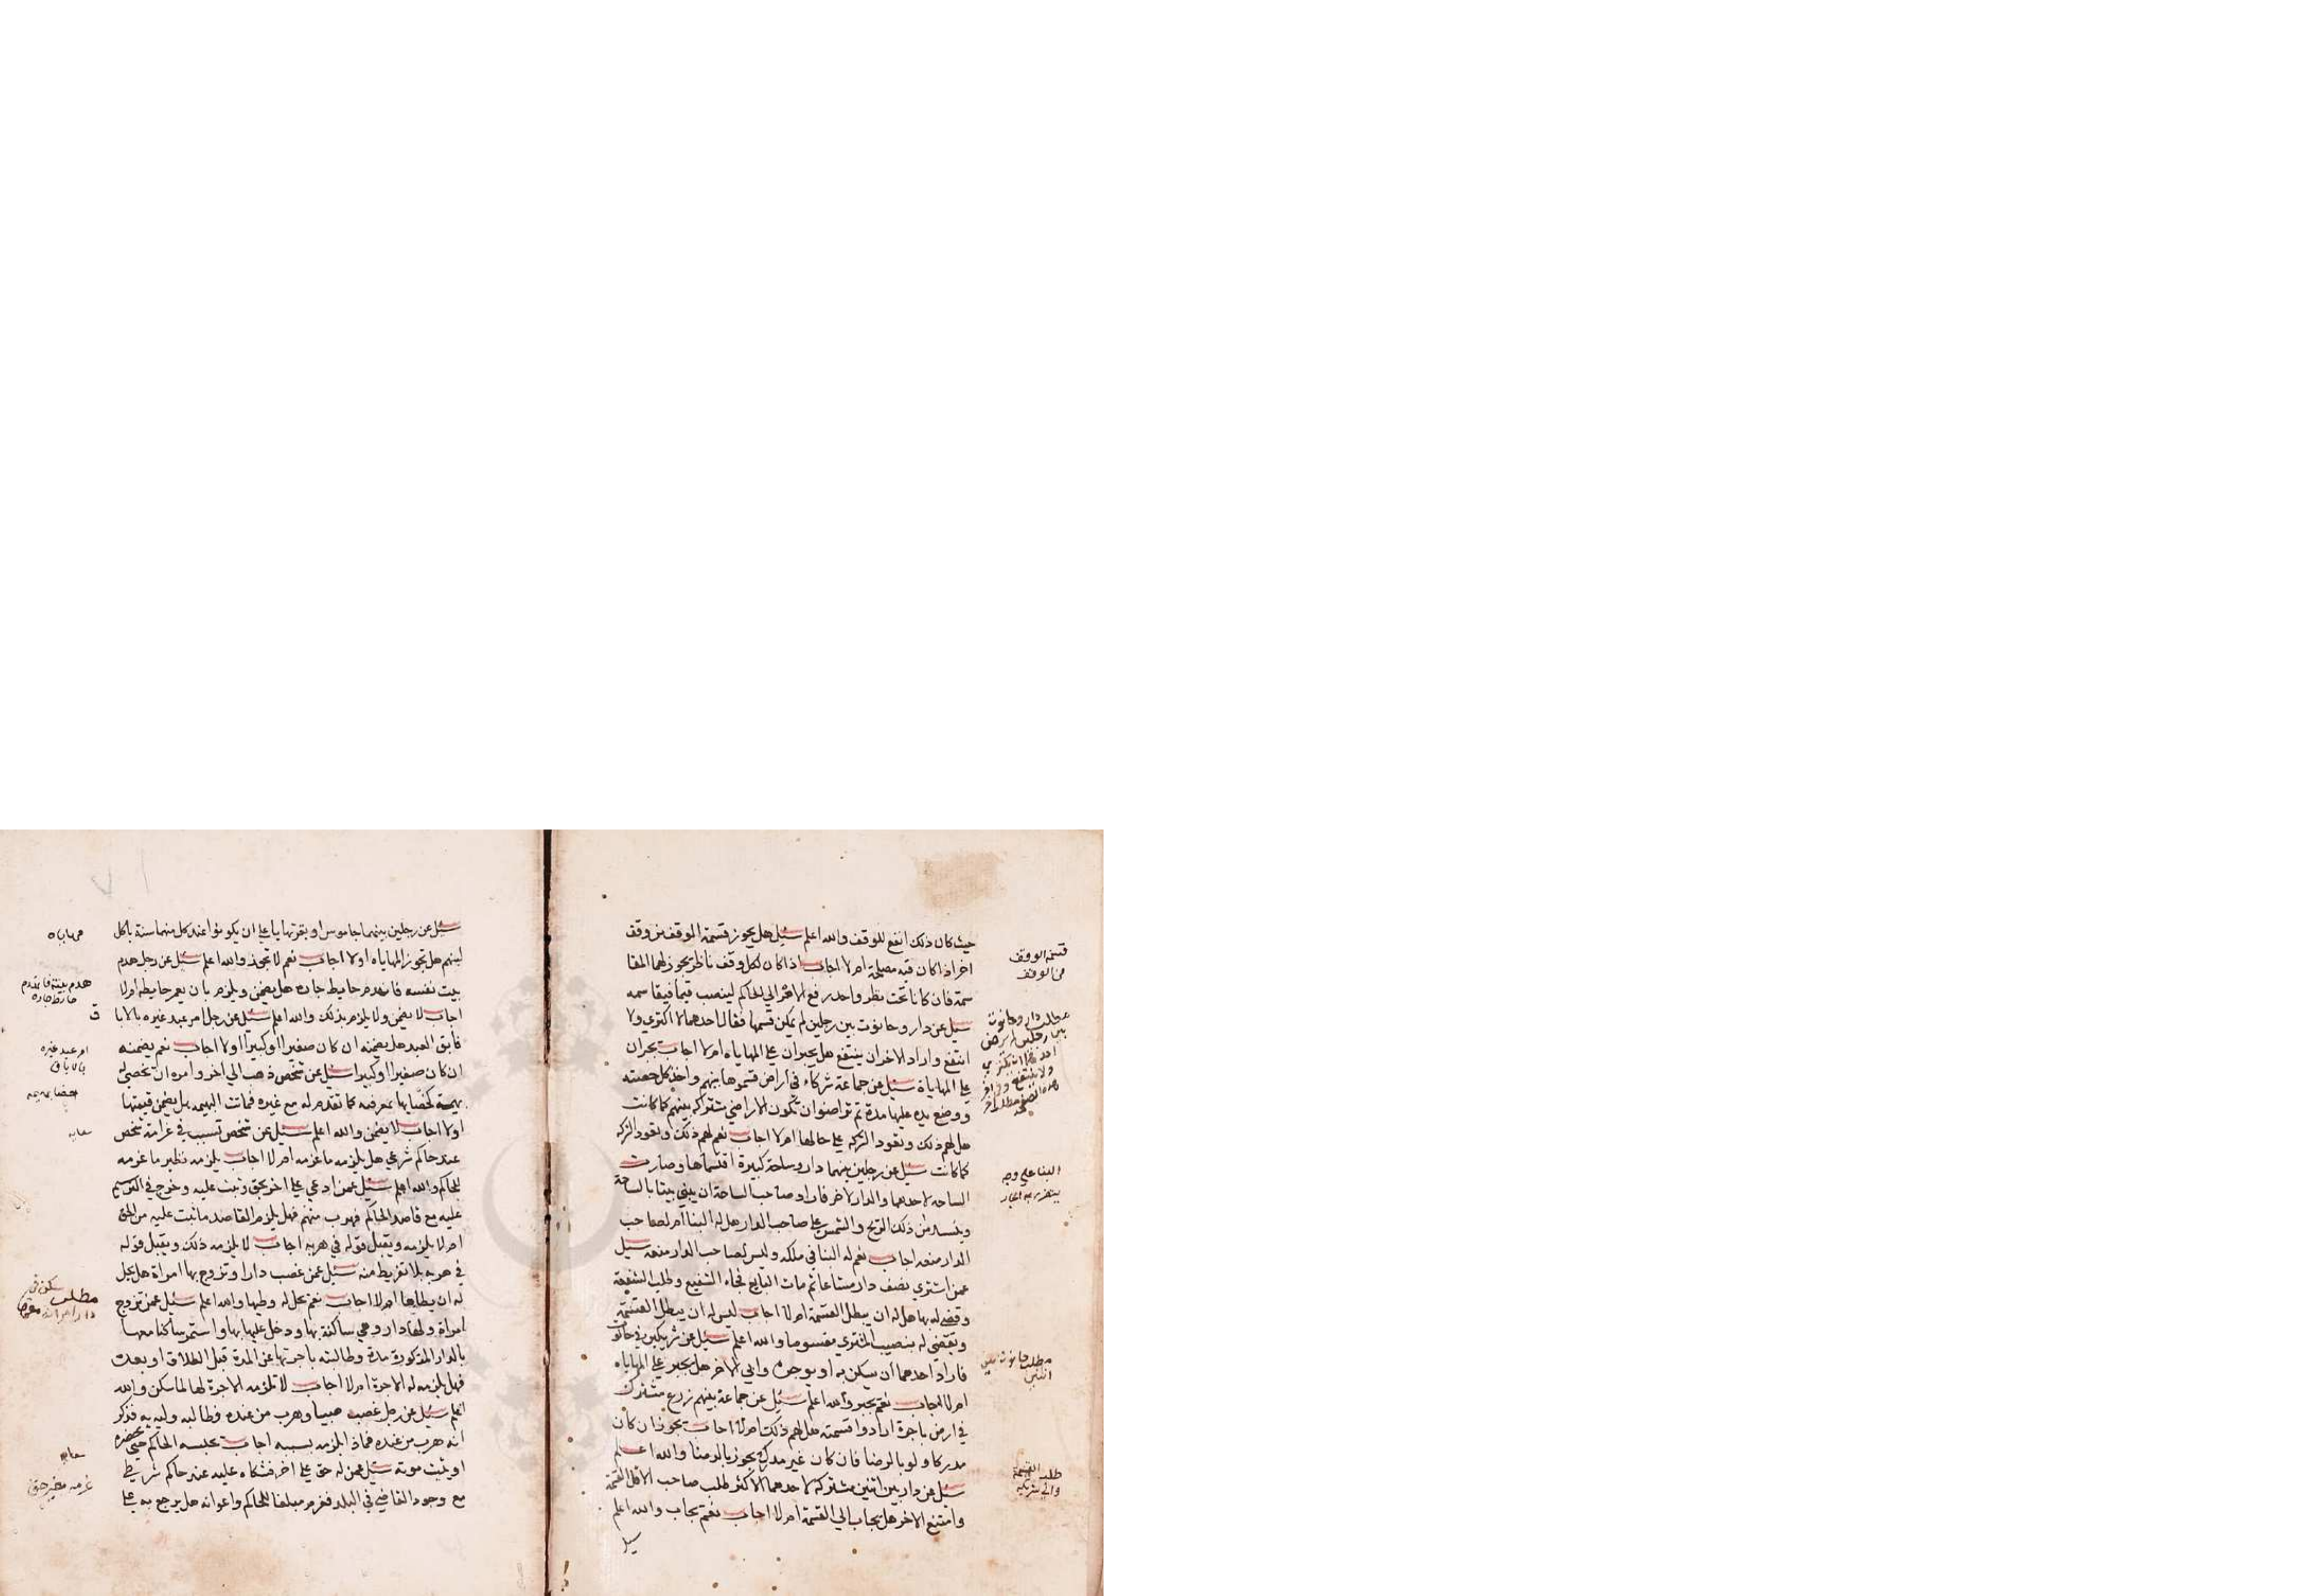 حيث كان ذلك انفع للوقف والله اعلم سيل هل يجوز قسمة الوقف من وقف
اخر اذا كان فيه مصلحة ام لا اجاب اذا كان لكل وقف ناظر يجوز لهما المقا
سمة فان كانا تحت نظر واحد رفع الامر الي الحاكم لينصب قيما فيقاسمه
سيل عن دار وحانوت بين رجلين لم يمكن قسمها فقال احدهما لا اكتري ولا
انتفع واراد الاخر ان ينتفع هل يجبران علي المهاياه ام لا اجاب يجبران
علي المهاياة سيل عن جماعة شركاء في اراض قسموها بينهم واخذ كل حصته
ووضع يده عليها مدة ثم تراضوا ان تكون الاراضي مشتركه بينهم كما كانت
هل لهم ذلك وتعود الشركه علي حالها ام لا اجاب نعم لهم ذلك وتعود الشركه
كما كانت سيل عن رجلين بينهما دار وساحة كبيرة اقتسماها وصارت
الساحه لاحدهما والدار للاخر فاراد صاحب الساحة ان يبني بيتا بالساحة
ويسد من ذلك الريح والشمس علي صاحب الدار هل له البنا ام لصاحب
الدار منعه اجاب نعم له البنا في ملكه وليس لصاحب الدار منعه سيل
عمن اشتري نصف دار مشاعا ثم مات البايع فجاء الشفيع وطلب الشفعة
وقضي له بها هل له ان يبطل القسمة ام لا اجاب ليس له ان يبطل القسمة
ويقضي له بنصيب المشتري مقسوما والله اعلم سيل عن شريكين في حانوت
فاراد احدهما ان يسكن به او يوجره وابي الاخر هل يجبر علي المهاياه
ام لا اجاب نعم يجبر والله اعلم سيل عن جماعة بينهم زرع مشترك
في ارض باجرة ارادوا قسمته هل لهم ذلك ام لا اجاب يجوز ان كان
مدركا ولو بالرضا فان كان غير مدرك يجوز بالرضا والله اعلم
سيل عن دار بين اثنين مشتركة لاحدهما الاكثر طلب صاحب الاقل القسمة
وامتنع الاخر هل يجاب الي القسمة ام لا اجاب نعم يجاب والله اعلم
سيل
قسمة الوقف
من الوقف
مطلب دار وحانوت
بين رجلين
البنا علي وجه
يتضرر به الجار
مطلب حانوت بين
اثنين
طلب القسمة
سيل عن رجلين بينهما جاموس او بقر تهايا علي ان يكونوا عند كل منهما سنة ياكل
لبنهم هل تجوز المهاياه اولا اجاب نعم لا تجوز والله اعلم سيل عن رجل هدم
بيت نفسه فانهدم حايط جاره هل يضمن ويلزم بان يعمر حايطه ام لا
اجاب لا يضمن ولا يلزم بذلك والله اعلم سيل عن رجل امر عبد غيره بالابا
فابق العبد هل يضمنه ان كان صغيرا او كبيرا اولا اجاب نعم يضمنه
ان كان صغيرا او كبيرا سيل عن شخص ذهب الي اخر وامره ان يخصي له
بهيمة فخصاها بمعرفيه كما تقدم له مع غيره فماتت البهيمه هل يضمن قيمتها
اولا اجاب لا يضمن والله اعلم سيل عن شخص تسبب في غرامة شخص
عند حاكم شرعي هل يلزمه ما غرمه ام لا اجاب يلزمه نظير ما غرمه
للحاكم والله اعلم سيل عمن ادعي علي اخر بحق وثبت عليه وخرج في الترسيم
عليه مع قاصد الحاكم فهرب منهم فهل يلزم القاصد ما ثبت عليه من الحق
ام لا يلزمه ويقبل قوله في هربه اجاب لا يلزمه ذلك ويقبل قوله
في هربه بلا تفريط منه سيل عمن غصب دارا وتزوج بها امراة هل يحل
له ان يطاها ام لا اجاب نعم يحل له وطيها والله اعلم سيل عمن تزوج
امراة ولها دار وهي ساكنة بها ودخل عليها بها واستمر ساكنا معها
بالدار المذكورة مدة وطالبته باجرتها عن المدة قبل الطلاق او بعده
فهل يلزمه له الاجرة ام لا اجاب لا تلزمه الاجرة لها لما سكن والله
اعلم سيل عن رجل غصب صبيا وهرب من عنده وطالبه وليه به فذكر
انه هرب من عنده فماذا يلزمه بسببه اجاب يحبسه الحاكم حتي يحضره
او يثبت موته سيل عمن له حق علي اخر فشكاه عليه عند حاكم شرطي
مع وجود القاضي في البلد فغرم مبلغا للحاكم واعوانه هل يرجع به علي
مهاياه
هدم بيته فانهدم
حايط جاره
امر عبد غيره
بالاباق
خصا بهيمه
سعايه
مطلب سكن في
دار امراته معها
سعايه